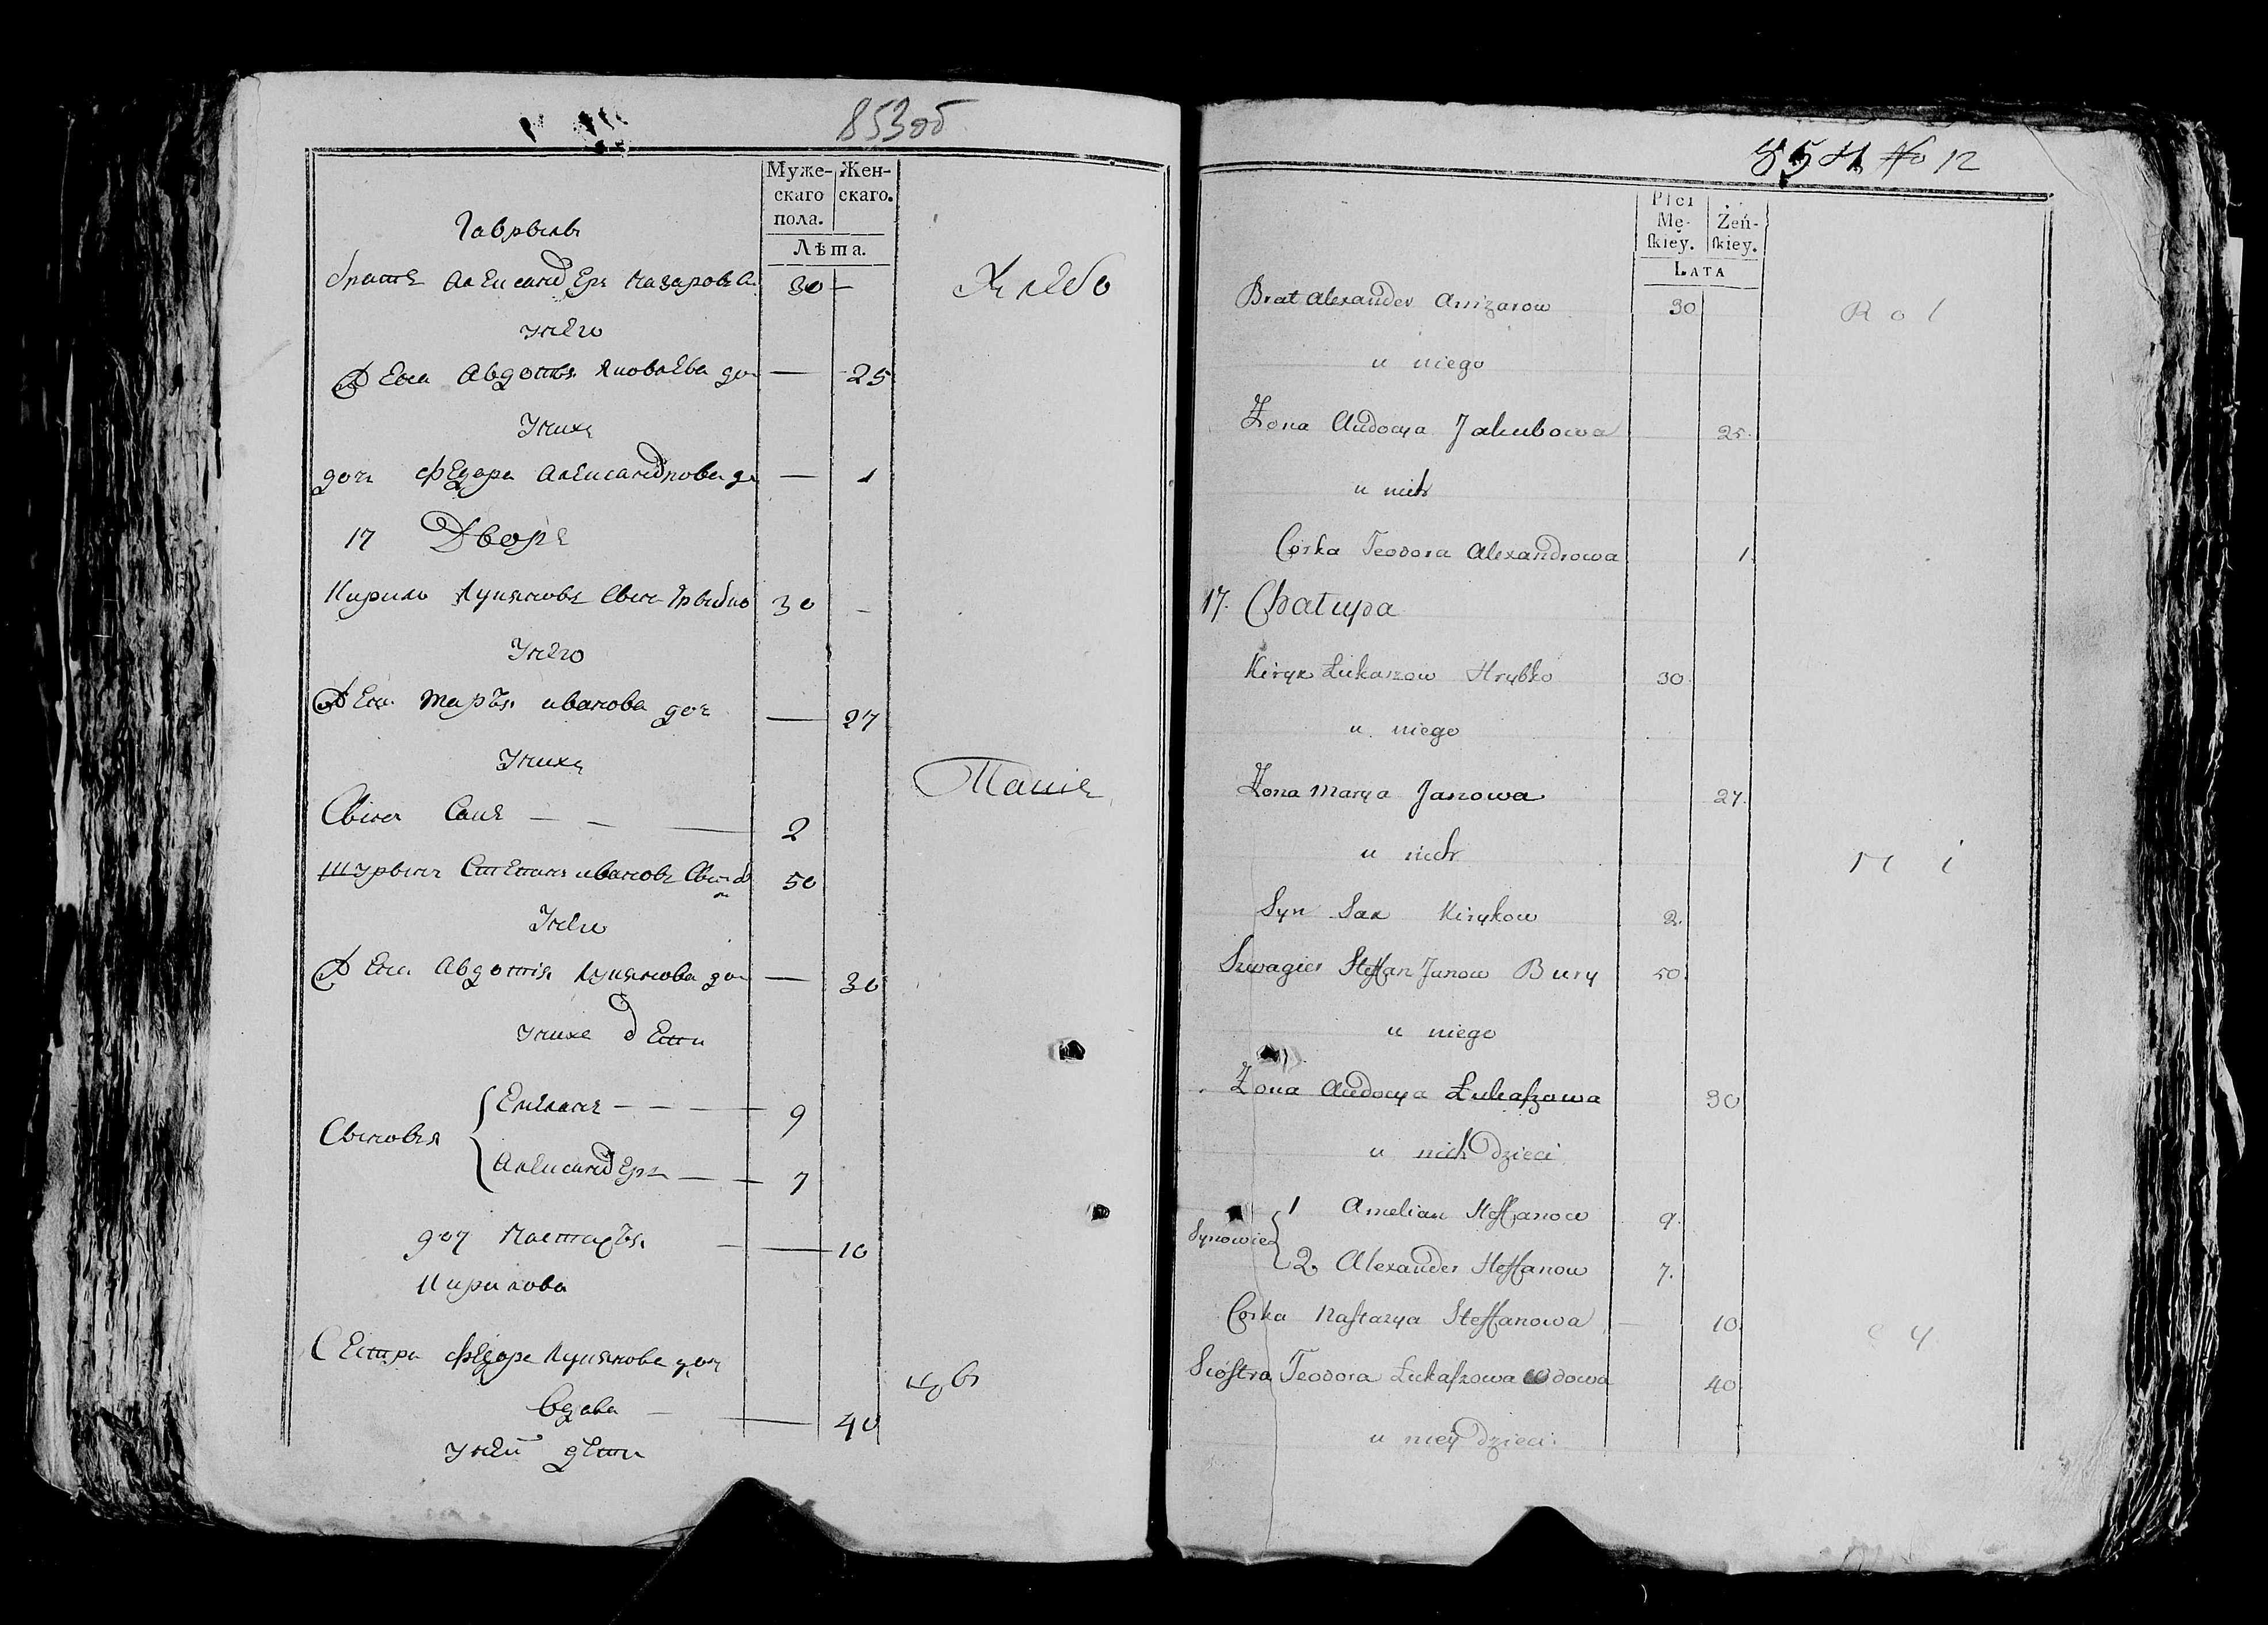 853об
Муже-
скаго
пола.
Жен-
скаго.
Лѣта.
Гаврыль
братъ Александеръ Назаровъ 30 —
Хлебо
Унего
Жена Авдотья Яковлева доч — 25
Унихъ
дочь Федора Александрова до — 1
17 Дворъ
Кирило Лукяновъ Сынъ Грыбко 30 —
Унего
Жена Марья иванова доч — 27
Унихъ
Пашіе
Сынъ Сакъ — — — 2
Шурынъ Степанъ ивановъ Сынъ 50
Унего
Жена Авдотія Лукянова доч — 30
Унихъ дети
Сыновья
Емелянъ — — — 9
Александеръ — — 7
доч Настасья — — 10
Кирилова
Сестра Федора Лукянова доч
Вдова — — 40
цы
Уней дети
854 No 12
Płci
Mę-
skiey.
Żeń-
skiey.
LATA
Brat Alexander 30
R o l
u niego
Żona Audocya Jakubowa 25.
u nich
Corka Teodora Alexandrowa 1.
17. Chałupa
Kiryk Łukaszow Hrybko 30.
u niego
Żona Marya Janowa 27.
u nich
n i
Syn Sak Kirykow 2.
Szwagier Steffan Janow Bury 50.
u niego
Żona Audocya Łukaszowa 30
u nich dzieci
Synowie
1 Amelian Steffanow 9.
2. Alexander Steffanow 7.
Corka Nastazya Steffanowa — 10.
c y
Siostra Teodora Łukaszowa Wdowa 40.
u niey dzieci.